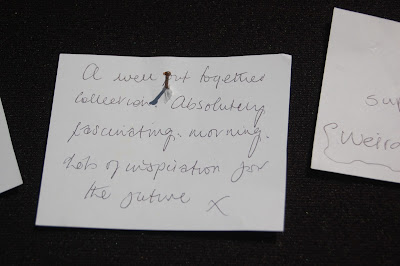 A well put together
collection. Absolutely
fascinating. morning.
Lots of inspiration for
the future X
sup
{Weird